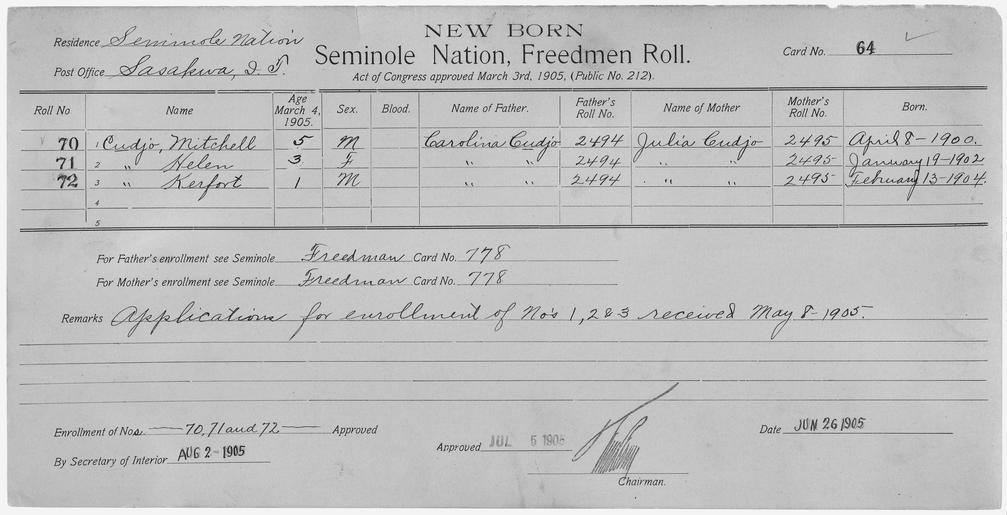 NEW BORN
Seminole Nation, Freedmen Roll.
Act of Congress approved March 3rd, 1905, (Public No. 212).
Residence Seminole Nation
Post Office Sasakwa, I. T.
Card No. 64
Roll No Name Age March 4, 1905. Sex. Blood. Name of Father. Father's Roll No. Name of Mother Mother's Roll No. Born.
70 1 Cudjo, Mitchell 5 M Carolina Cudjo 2494 Julia Cudjo 2495 April 8-1900.
71 2 " Helen 3 F " " 2494 " " 2495 January 19-1902
72 3 " Kerfort 1 M " " 2494 " " 2495 February 13-1904.
4
5
For Father's enrollment see Seminole Freedman Card No. 778
For Mother's enrollment see Seminole Freedman Card No. 778
Remarks Applications for enrollment of Nos 1, 2 & 3 received May 8-1905.
Enrollment of Nos. 70, 71 and 72 Approved
By Secretary of Interior AUG 2-1905
Approved JUL 5 1905
Chairman.
Date JUN 26 1905